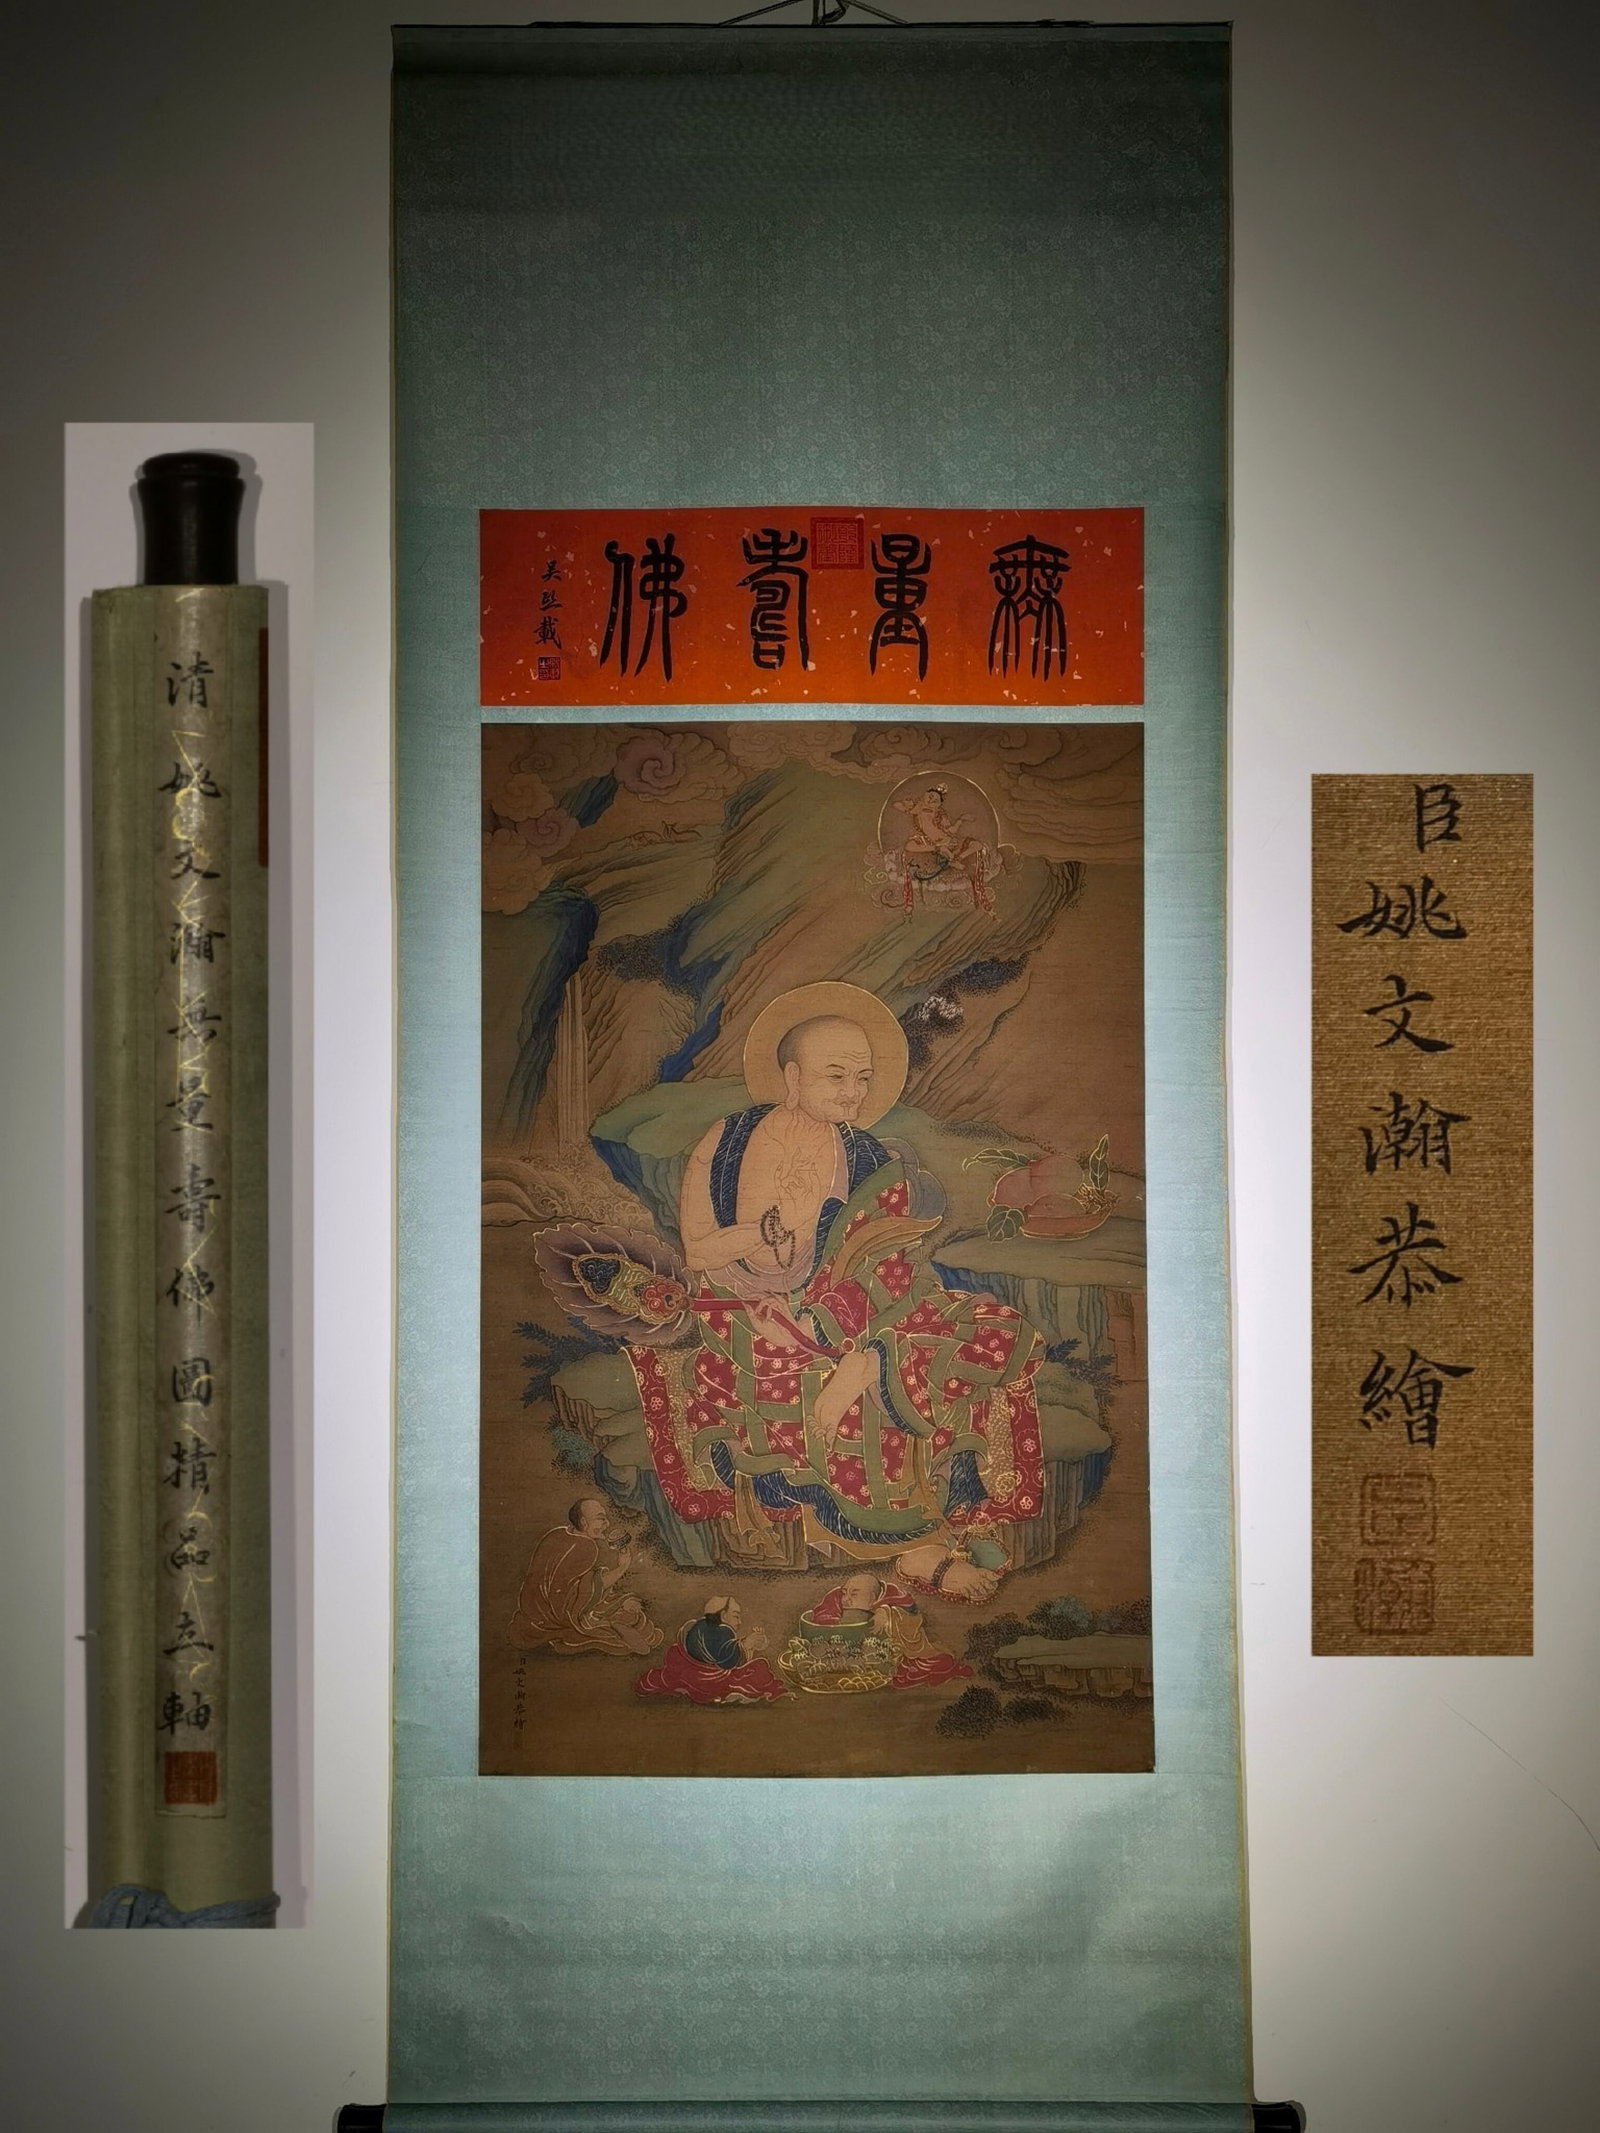 無量壽佛
吳熙載
清姚文瀚無量壽佛圖精品立軸
臣姚文瀚恭繪
臣姚文瀚恭繪